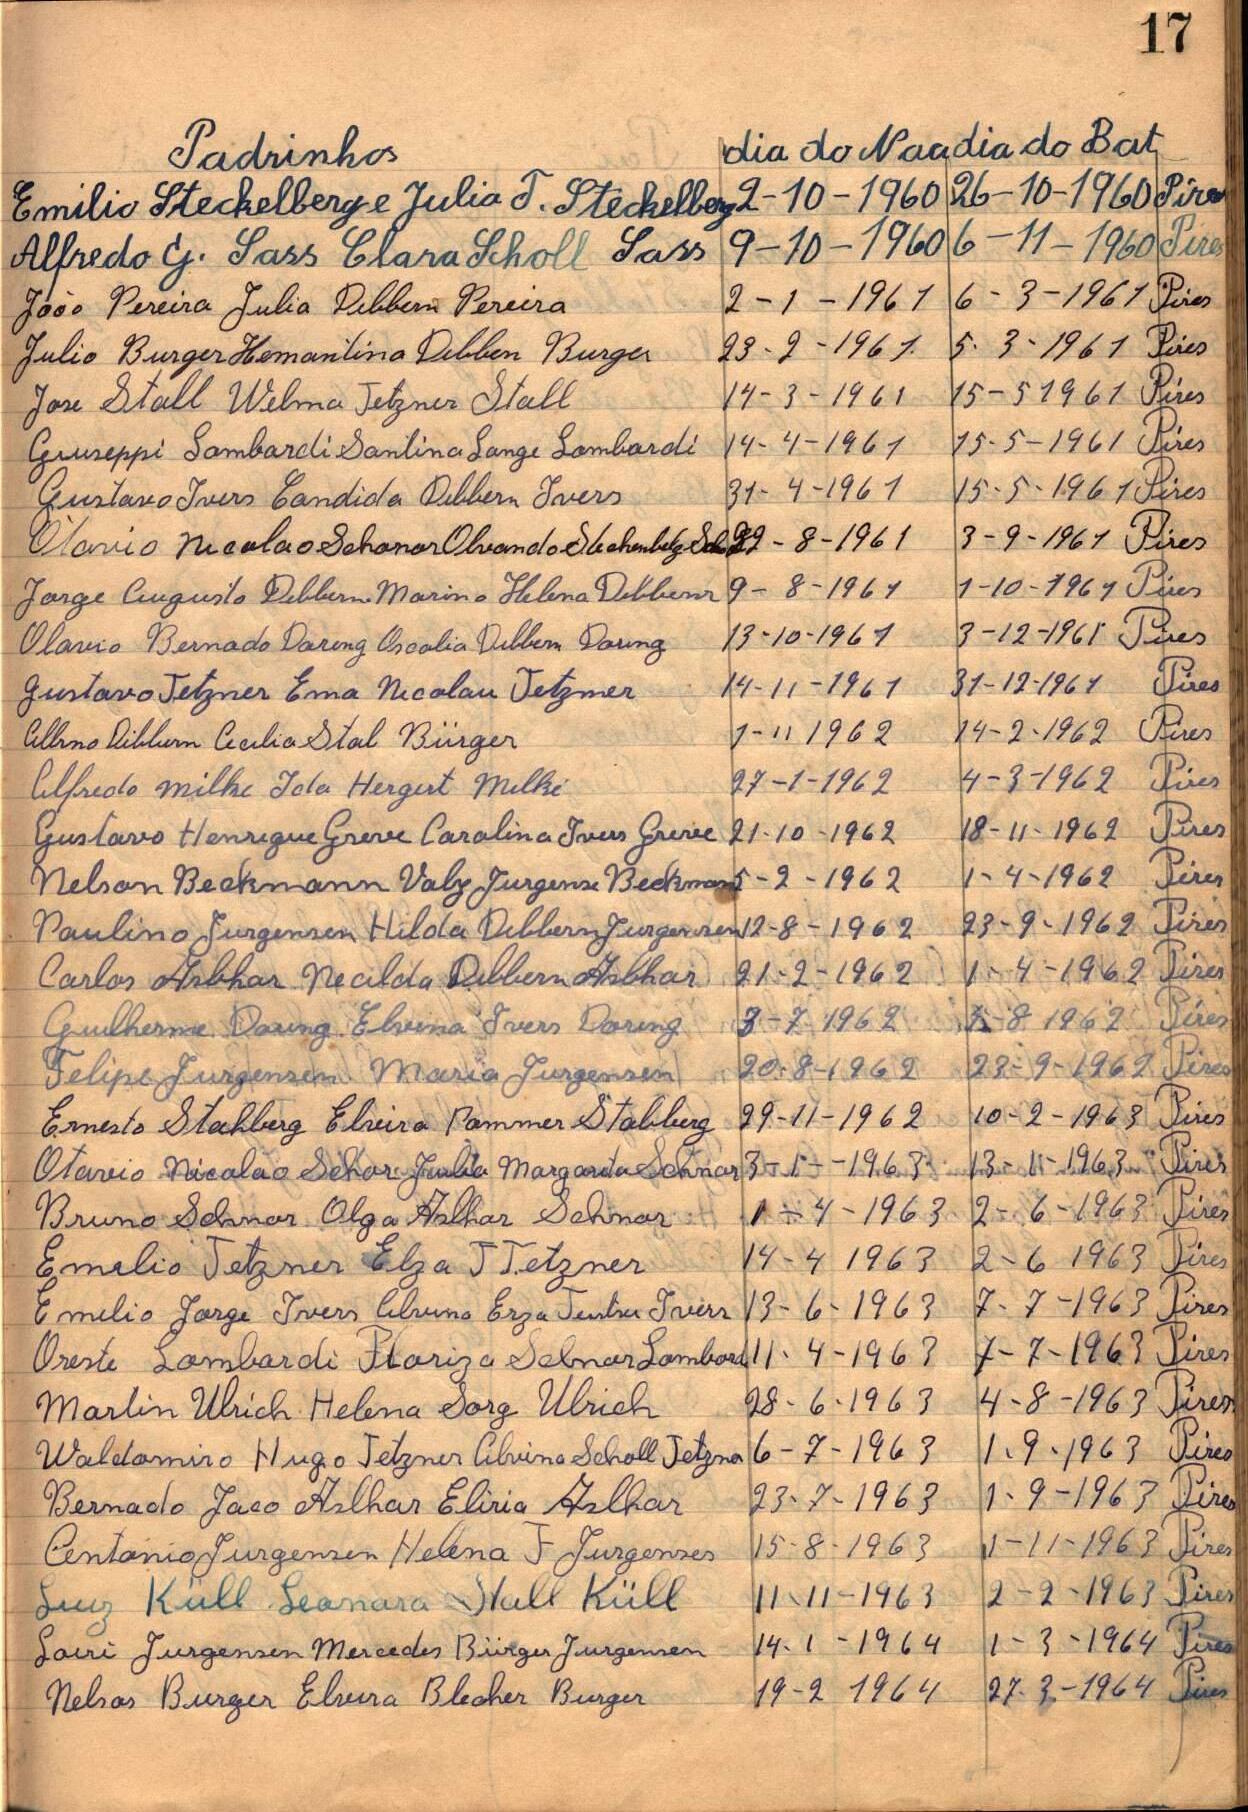 17
Padrinhos dia do Naa dia do Bat
Emilio Steckelberg e Julia T. Steckelberg 2-10-1960 26-10-1960 Pires
Alfredo G. Sass Clara Scholl Sass 9-10-1960 6-11-1960 Pires
João Pereira Julia Dibbern Pereira 2-1-1961 6-3-1961 Pires
Julio Burger Hemantina Dibben Burger 23-2-1961 5-3-1961 Pires
Jose Stall Welma Tetzner Stall 14-3-1961 15-5 1961 Pires
Guiseppi Lombardi Santina Lange Lombardi 14-4-1961 15-5-1961 Pires
Gustavo Ivers Candida Dibbern Ivers 31-4-1961 15-5-1961 Pires
Otavio Nicolao Schonor 29-8-1961 3-9-1961 Pires
Jorge Augusto Dibbern Marina Helena Dibbern 9-8-1961 1-10-1961 Pires
Olavio Bernado Daring Oscalia Dibbern Daring 13-10-1961 3-12-1961 Pires
Gustavo Tetzner Ema Nicolau Tetzner 14-11-1961 31-12-1961 Pires
Dibbern Cecilia Stal Bürger 1-11 1962 14-2-1962 Pires
Alfredo Milke Ida Hergert Milke 27-1-1962 4-3-1962 Pires
Gustavo Henrique Greve Carolina Ivers Greve 21-10-1962 18-11-1962 Pires
Nelson Beckmann Valy Jurgense Beckmann 5-2-1962 1-4-1962 Pires
Paulino Jurgensen Hilda Dibbern Jurgensen 12-8-1962 23-9-1962 Pires
Carlos Asbhar Necilda Dibbern Asbhar 21-2-1962 1-4-1962 Pires
Guilherme Daring Elvina Ivers Daring 3-7-1962 -8 1962 Pires
Felipe Jurgensen Maria Jurgensen 20-8-1962 23-9-1962 Pires
Ernesto Stahberg Elveira Pammer Stabberg 29-11-1962 10-2-1963 Pires
Otavio Nicolao Schor Julia Margarida Schnar 3-1--1963 13-1-1963 Pires
Bruno Schnor Olga Aslhar Schnor 1-4-1963 2-6-1963 Pires
Emilio Tetzner Elza T Tetzner 14-4 1963 2-6 1963 Pires
Emilio Jorge Ivers Erza Ivers 13-6-1963 7-7-1963 Pires
Oreste Lombardi Floriza Selnar Lombard 11-4-1963 7-7-1963 Pires
Martin Ulrich Helena Sorg Ulrich 28-6-1963 4-8-1963 Pires
Waldomiro Hugo Tetzner Alvina Scholl Tetzner 6-7-1963 1.9.1963 Pires
Bernado Jaco Aslhar Eliria Aslhar 23-7-1963 1-9-1963 Pires
Centonio Jurgensen Helena F Jurgenses 15-8-1963 1-11-1963 Pires
Luiz Küll Leonara Stall Küll 11-11-1963 2-2-1963 Pires
Loiri Jurgensen Mercedes Bürger Jurgensen 14-1-1964 1-3-1964 Pires
Nelsos Burger Elveira Blecher Burger 19-2 1964 27-3-1964 Pires